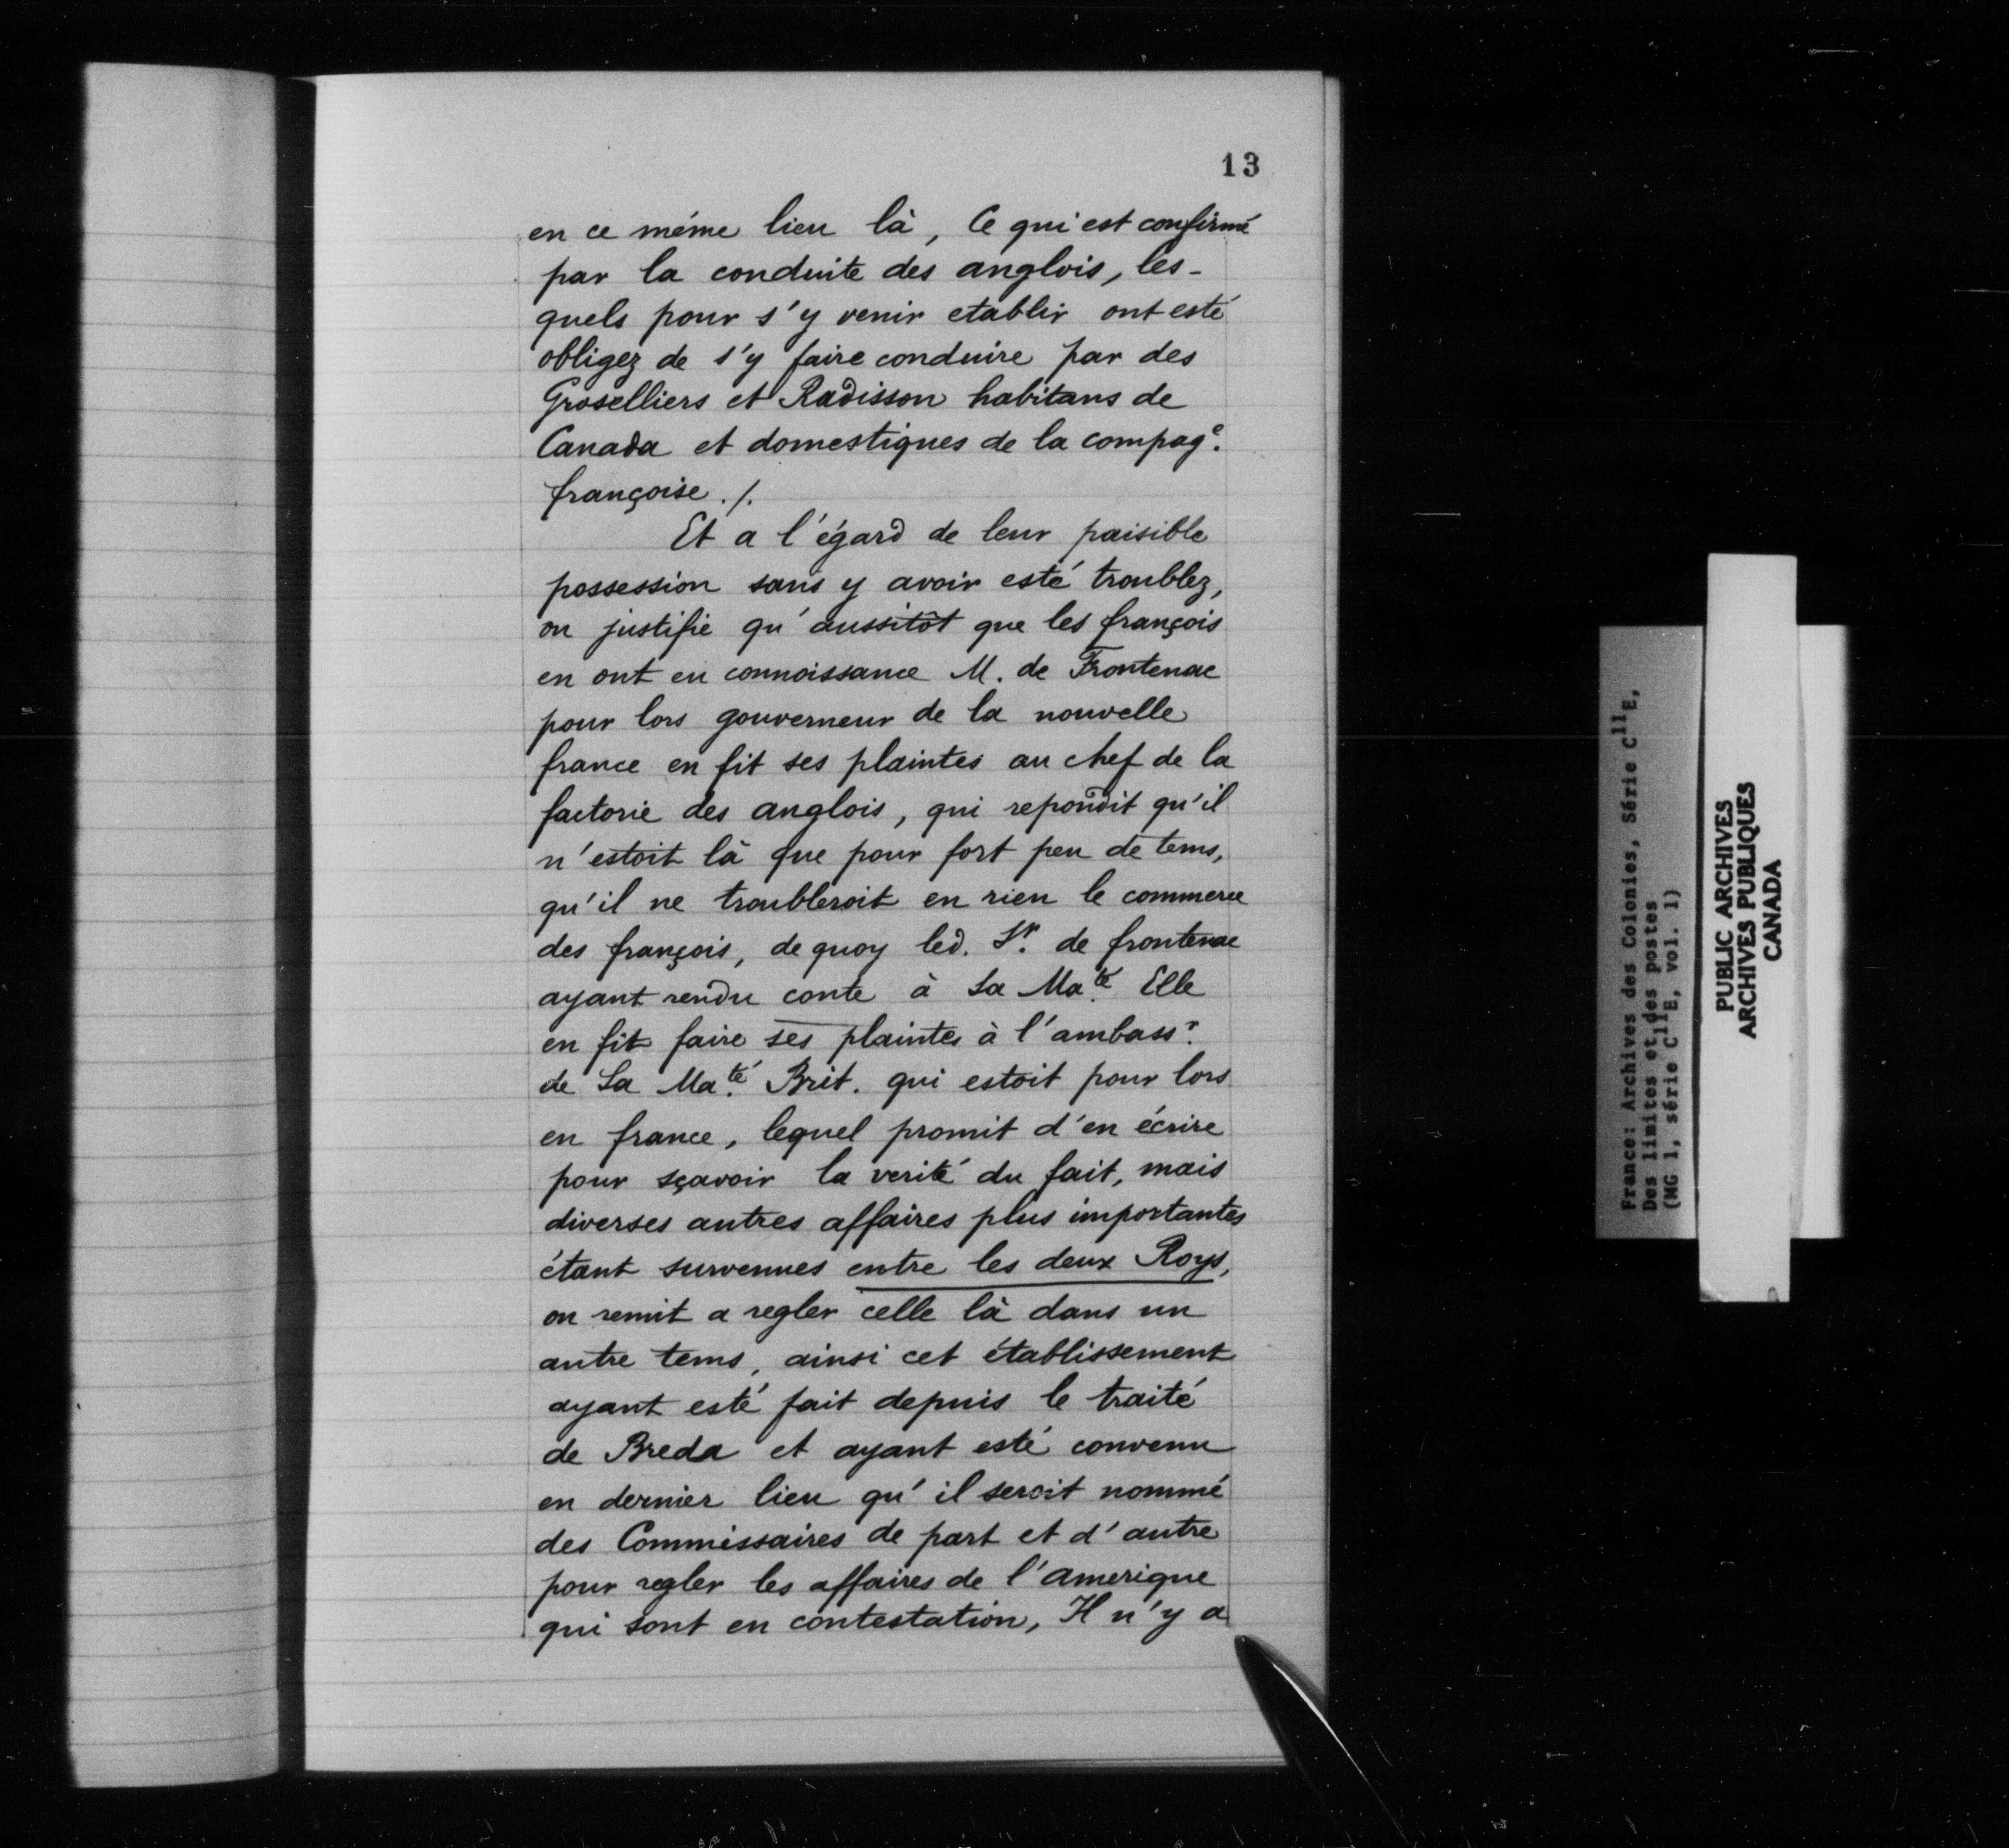 13
en ce même lieu là, Ce qui est confirmé
par la conduite des anglois, les-
quels pour s'y venir etablir ont esté
obligez de s'y faire conduire par des
Groselliers et Radisson habitans de
Canada et domestiques de la compagᵉ.
françoise ./.
Et a l'égard de leur paisible
possession sans y avoir esté troublez,
on justifie qu'aussitôt que les françois
en ont eu connoissance M. de Frontenac
pour lors gouverneur de la nouvelle
france en fit ses plaintes au chef de la
factorie des anglois, qui repondit qu'il
n'estoit là que pour fort peu de tems,
qu'il ne troubleroit en rien le commerce
des françois, de quoy led. Sʳ. de frontenac
ayant rendu conte à Sa Maᵗᵉ. Elle
en fit faire ses plaintes à l'ambassʳ.
de Sa Maᵗᵉ́. Brit. qui estoit pour lors
en france, lequel promit d'en écrire
pour sçavoir la verité du fait, mais
diverses autres affaires plus importantes
étant survenues entre les deux Roys,
on remit a regler celle là dans un
autre tems, ainsi cet établissement
ayant esté fait depuis le traité
de Breda et ayant esté convenu
en dernier lieu qu'il seroit nommé
des Commissaires de part et d'autre
pour regler les affaires de l'amerique
qui sont en contestation, Il n'y a
France: Archives des Colonies, Série C¹¹E,
Des limites et des postes
(MG 1, série C¹¹E, vol. 1)
PUBLIC ARCHIVES
ARCHIVES PUBLIQUES
CANADA